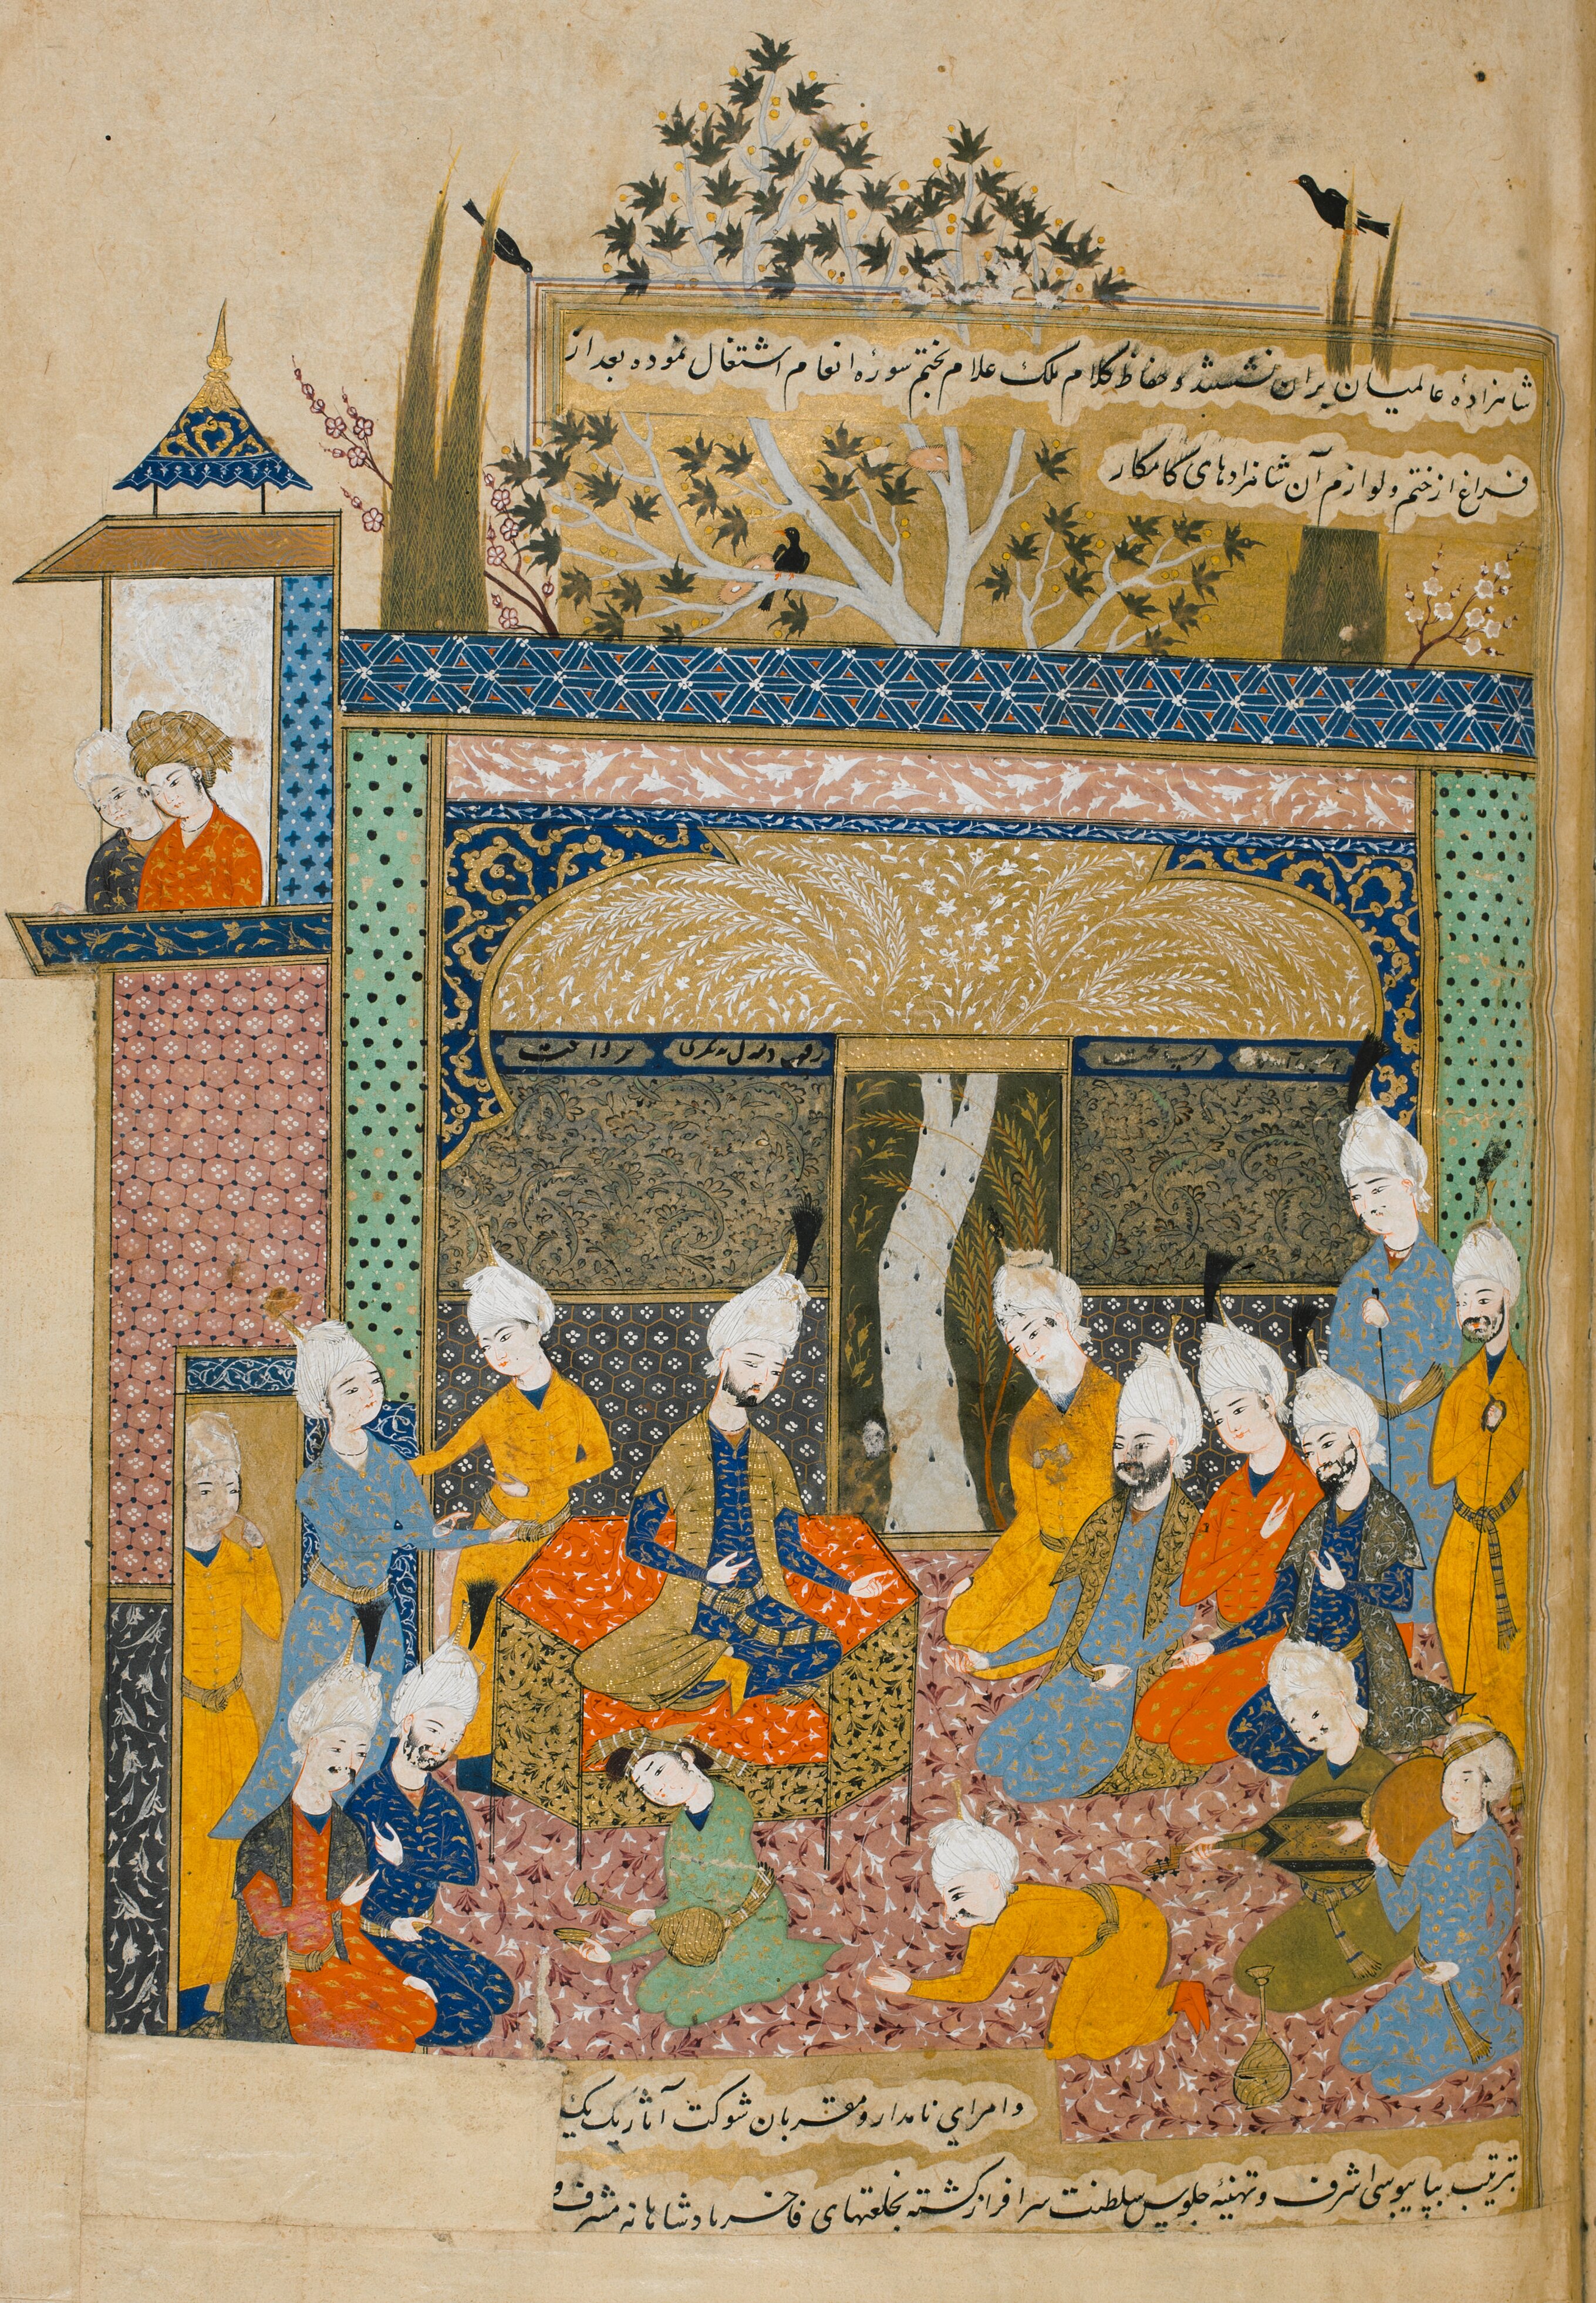 شاهزادهٔ عالمیان بران نشستند و حفاظ کلام ملک علام بختم سورهٔ انعام اشتغال نموده بعد از
فراغ از ختم و لوازم آن شاهزادهای کامکار
وامرای نامدار و مقربان شوکت آثار یک یک
بترتیب بپایبوسی اشرف و تهنیهٔ جلوس سلطنت سرافراز گشته بخلعتهای فاخر پادشاهانه مشرف و